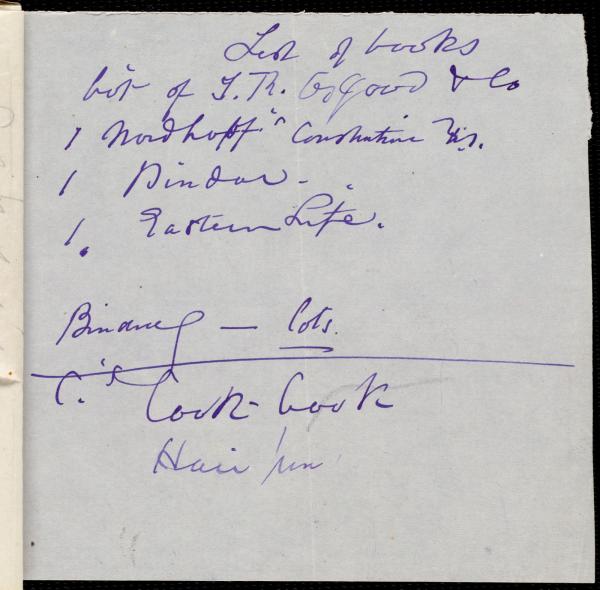 List of books
bot of J. R. Osgood & Co
1 Nordhoff's
1 Pindar.
1. Eastern Life.
Binding — Cots.
C.'s Cook-book
Hair pin